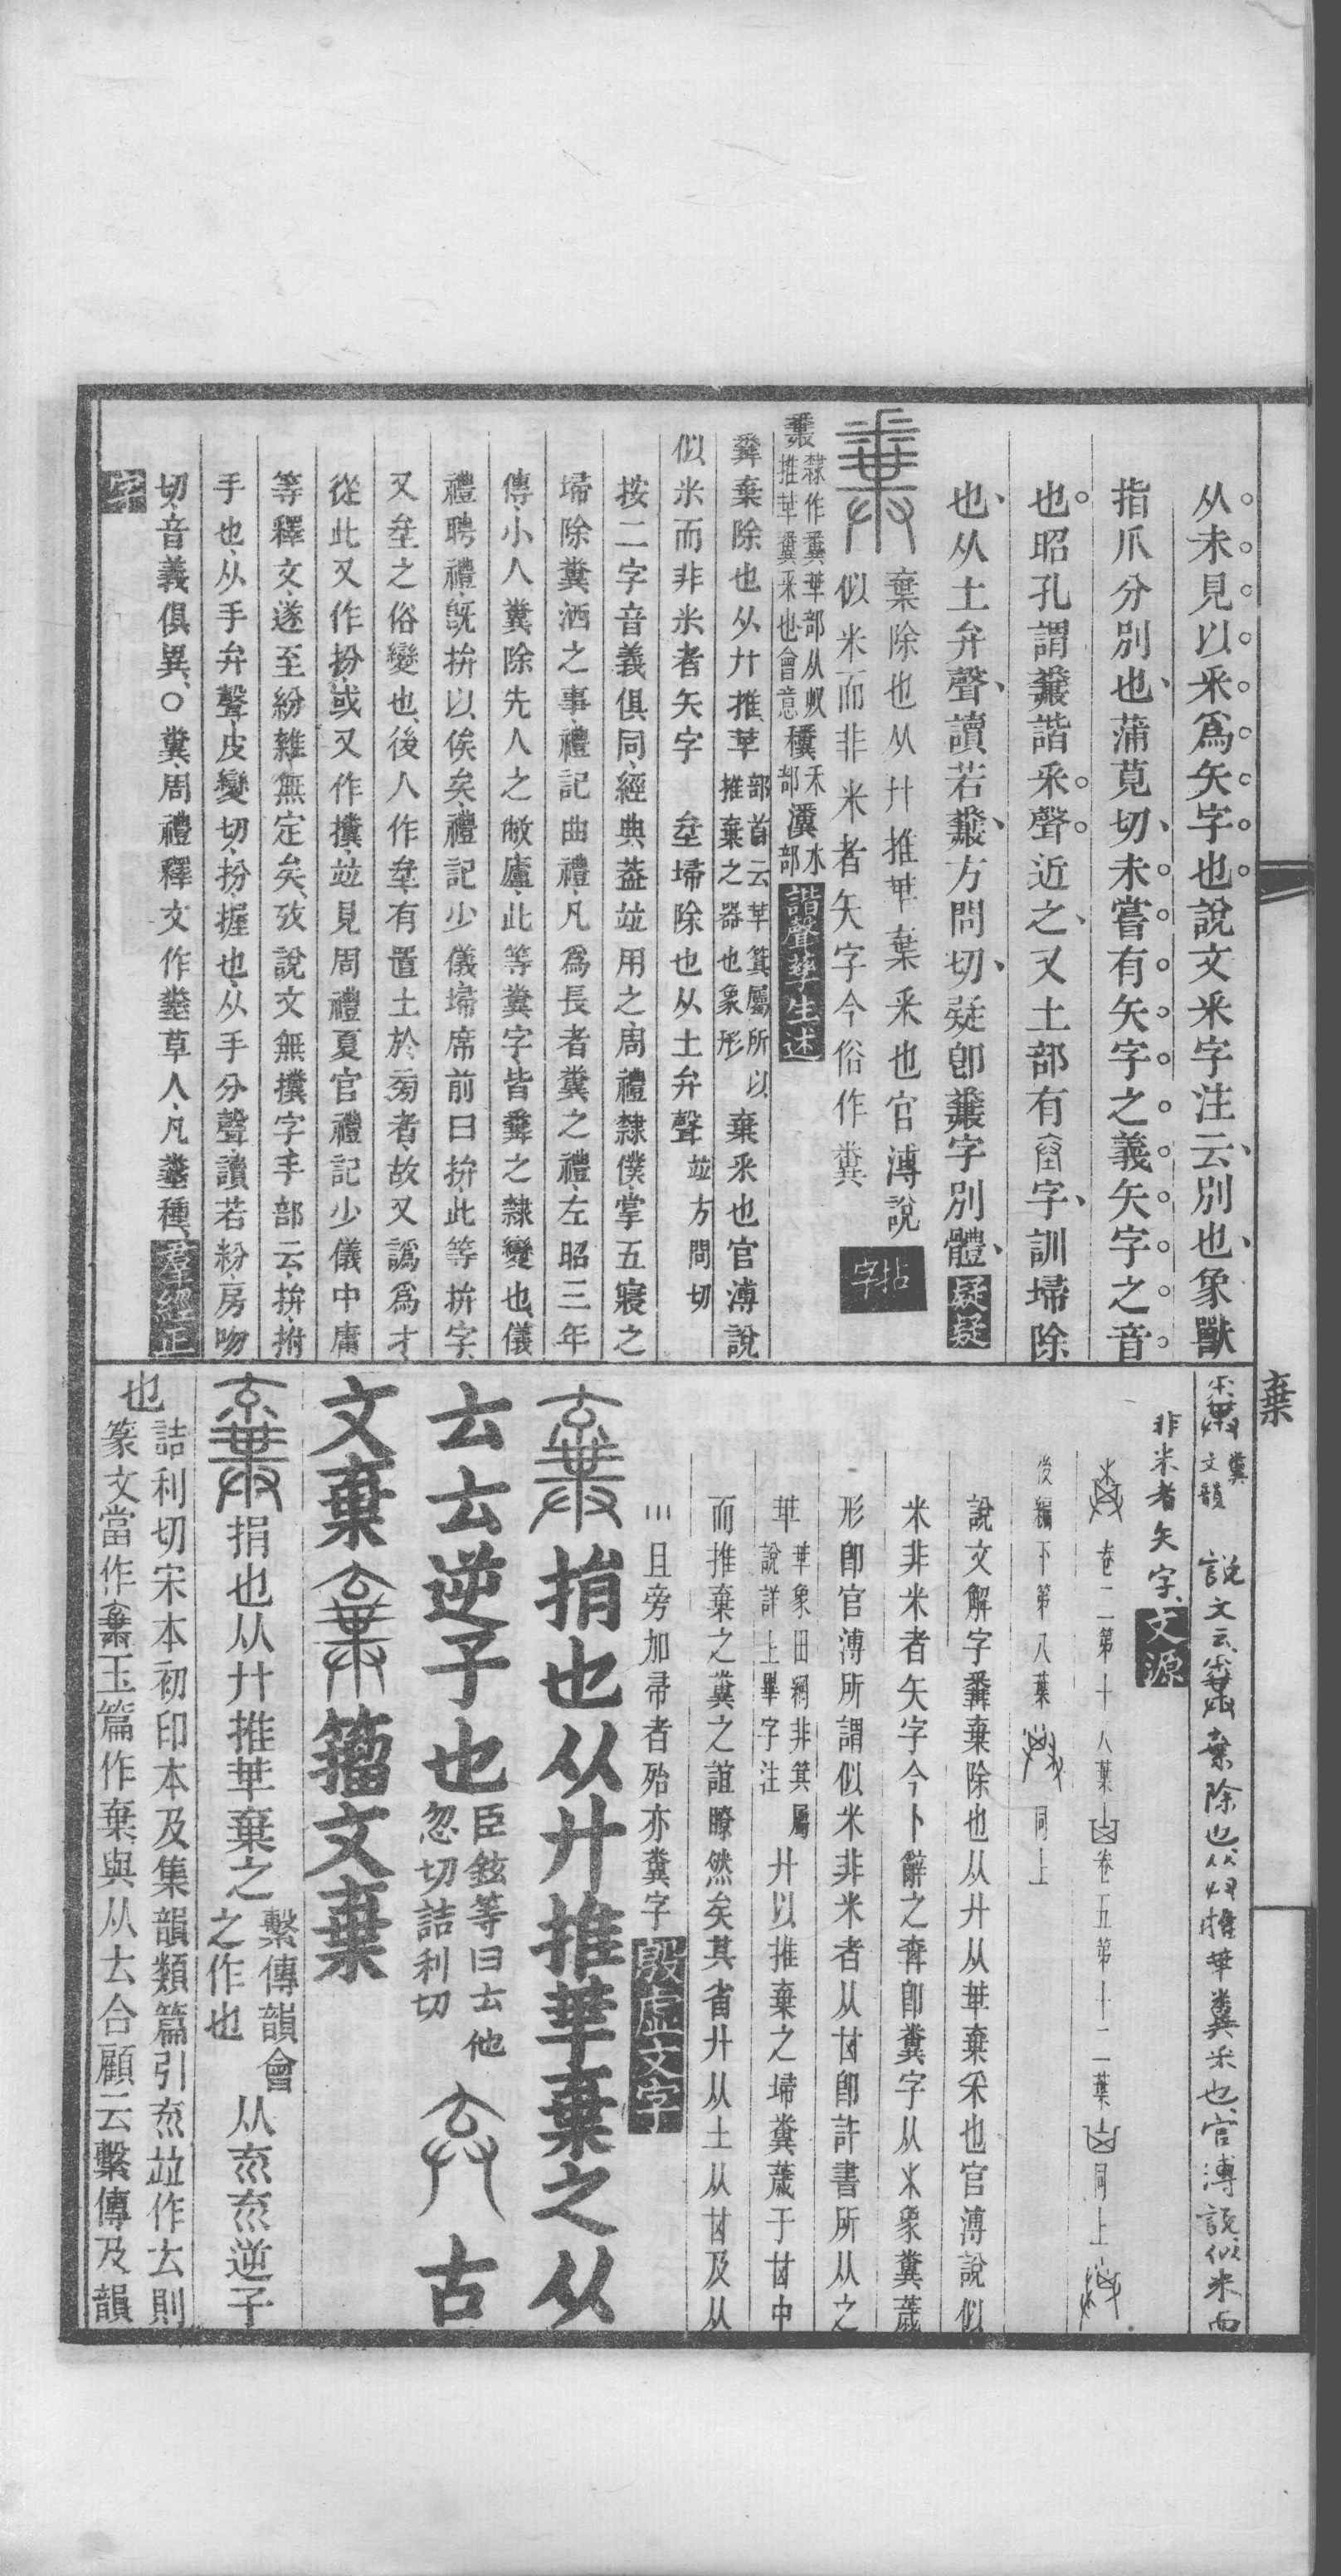 从未見以釆爲矢字也說文釆字注云別也象獸
指爪分別也蒲莧切未嘗有矢字之義矢字之音
也昭孔謂糞諧釆聲近之又土部有坌字訓埽除
也从土弁聲讀若糞方問切疑卽糞字別體疑疑
棄除也从廾推𠦒棄釆也官溥說
似米而非米者矢字今俗作糞
拈字
隸作糞𠦒部从収
推𠦒糞釆也會意
禾部
水部
諧聲孳生述
糞棄除也从廾推𠦒
部首云𠦒箕屬所以
推棄之器也象形
棄釆也官溥說
似米而非米者矢字 坌埽除也从土弁聲並方問切
按二字音義俱同經典葢竝用之周禮隸僕掌五寢之
埽除糞洒之事禮記曲禮凡爲長者糞之禮左昭三年
傳小人糞除先人之敝廬此等糞字皆糞之隸變也儀
禮聘禮旣拚以俟矣禮記少儀埽席前曰拚此等拚字
又坌之俗變也後人作坌有置土於旁者故又譌爲才
從此又作扮或又作㩥竝見周禮夏官禮記少儀中庸
等釋文遂至紛雜無定矣攷說文無㩥字手部云拚拊
手也从手弁聲皮變切扮握也从手分聲讀若粉房吻
切音義俱異○糞周禮釋文作㙻草人凡㙻種羣經正
字
棄
糞
文韻
說文云棄除也从廾推𠦒糞釆也官溥說似米而
非米者矢字文源
卷二第十八葉 卷五第十二葉 同上
後編下第八葉 同上
說文解字糞棄除也从廾从𠦒棄釆也官溥說似
米非米者矢字今卜辭之 卽糞字从 象糞薉
形卽官溥所謂似米非米者从 卽許書所从之
𠦒
𠦒象田網非箕屬
說詳上畢字注
廾以推棄之埽糞薉于 中
而推棄之糞之誼瞭然矣其省廾从土从 及从
且旁加帚者殆亦糞字殷虛文字
捐也从廾推𠦒棄之从
𠫓𠫓逆子也
臣鉉等曰𠫓他
忽切詰利切
古
文棄 籀文棄
捐也从廾推𠦒棄之
繫傳韻會
之作也
从㐬㐬逆子
也
詰利切宋本初印本及集韻類篇引㐬竝作𠫓則
篆文當作棄玉篇作棄與从𠫓合顧云繫傳及韻